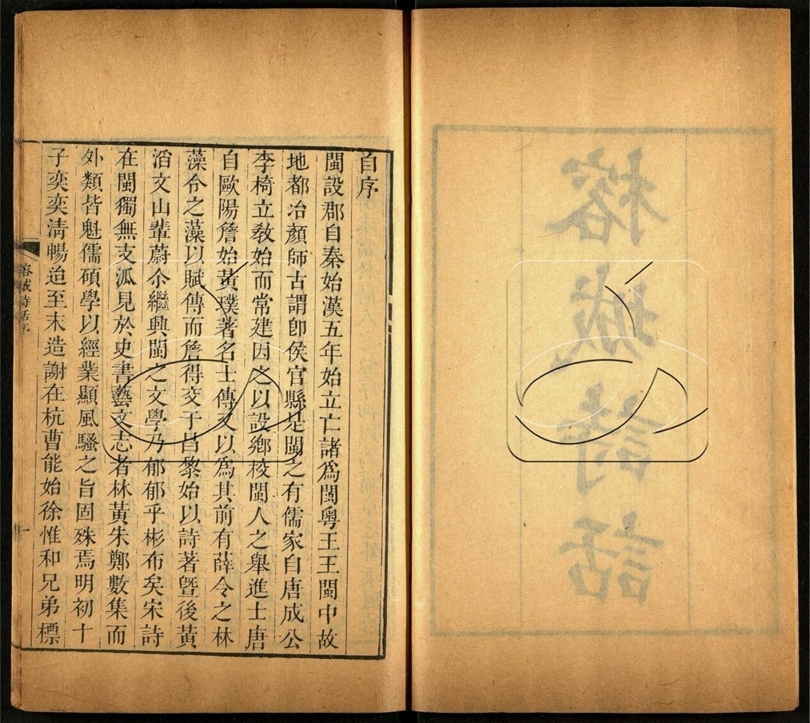 榕城詩話
自序
閩設郡自秦始漢五年始立亡諸爲閩粵王王閩中故
地都冶顏師古謂卽侯官縣是閩之有儒家自唐成公
李椅立敎始而常建因之以設鄉校閩人之舉進士唐
自歐陽詹始黃璞著名士傳又以爲其前有薛令之林
藻令之藻以賦傳而詹得交于昌黎始以詩著曁後黃
滔文山輩蔚尒繼興閩之文學乃郁郁乎彬布矣宋詩
在閩獨無支泒見於史書藝文志者林黃朱鄭數集而
外類皆魁儒碩學以經業顯風騷之旨固殊焉明初十
子奕奕淸暢迨至末造謝在杭曹能始徐惟和兄弟標
榕城詩話序
一